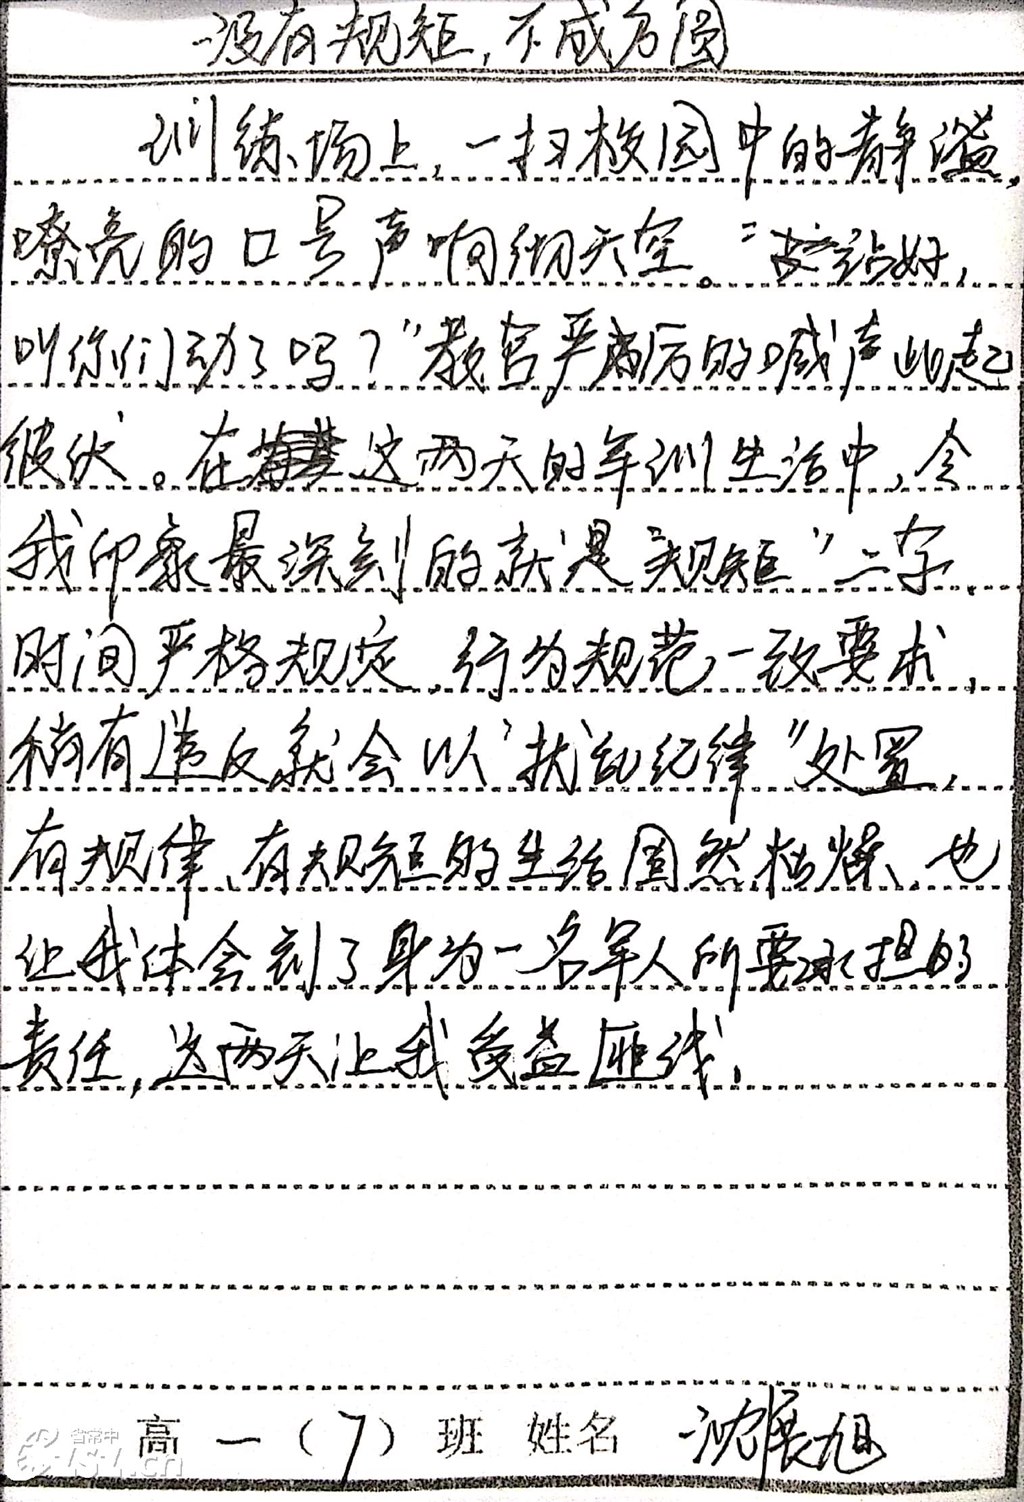 没有规矩,不成方圆
训练场上,一扫校园中的静谧,
嘹亮的口号声响彻天空。"站好,
叫你们动了吗?"教官严厉的喊声此起
彼伏。在这两天的军训生活中,令
我印象最深刻的就是"规矩"二字,
时间严格规定,行为规范一致要求,
稍有违反就会以"扰乱纪律"处置,
有规律、有规矩的生活固然枯燥,也
让我体会到了身为一名军人所要承担的
责任,这两天让我受益匪浅,
高一(7)班 姓名 沈展旭
省常中